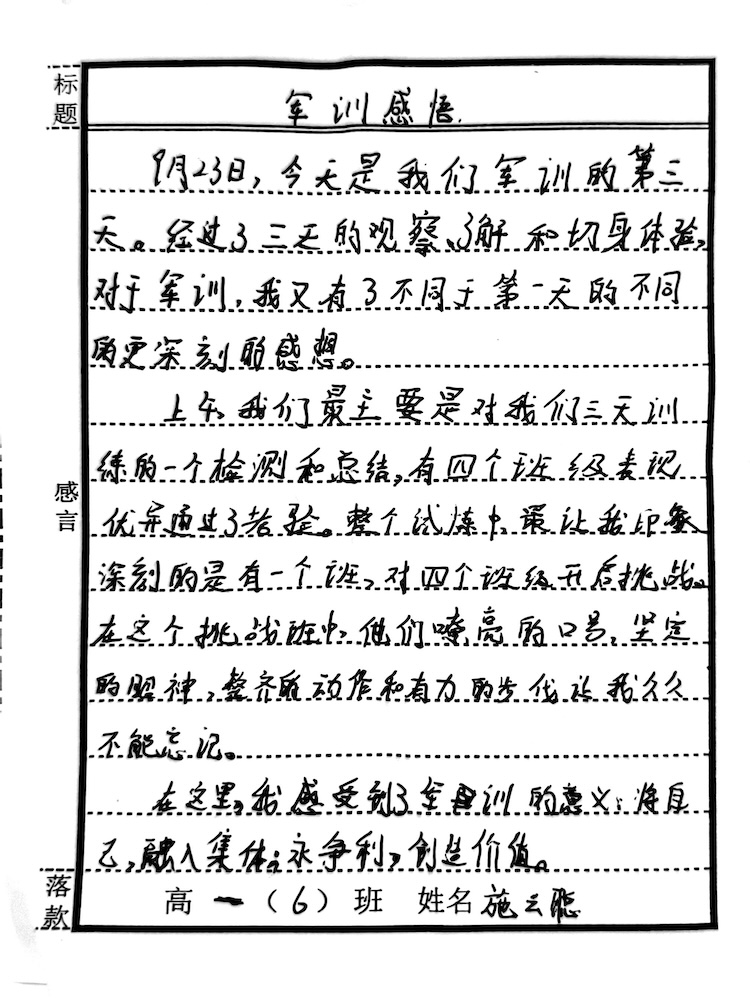 标题
军训感悟.
9月23日，今天是我们军训的第三
天。经过了三天的观察、了解和切身体验，
对于军训，我又有了不同于第一天的不同
的更深刻的感想。
上午，我们最主要是对我们三天训
练的一个检测和总结，有四个班级表现
优异通过了考验。整个试炼中，最让我印象
深刻的是有一个班，对四个班级开启挑战。
在这个挑战班中，他们嘹亮的口号，坚定
的眼神，整齐的动作和有力的步伐让我久久
不能忘记。
感言
在这里，我感受到了军训的意义：将自
己，融入集体；永争利，创造价值。
落款
高一（6）班 姓名施云聪